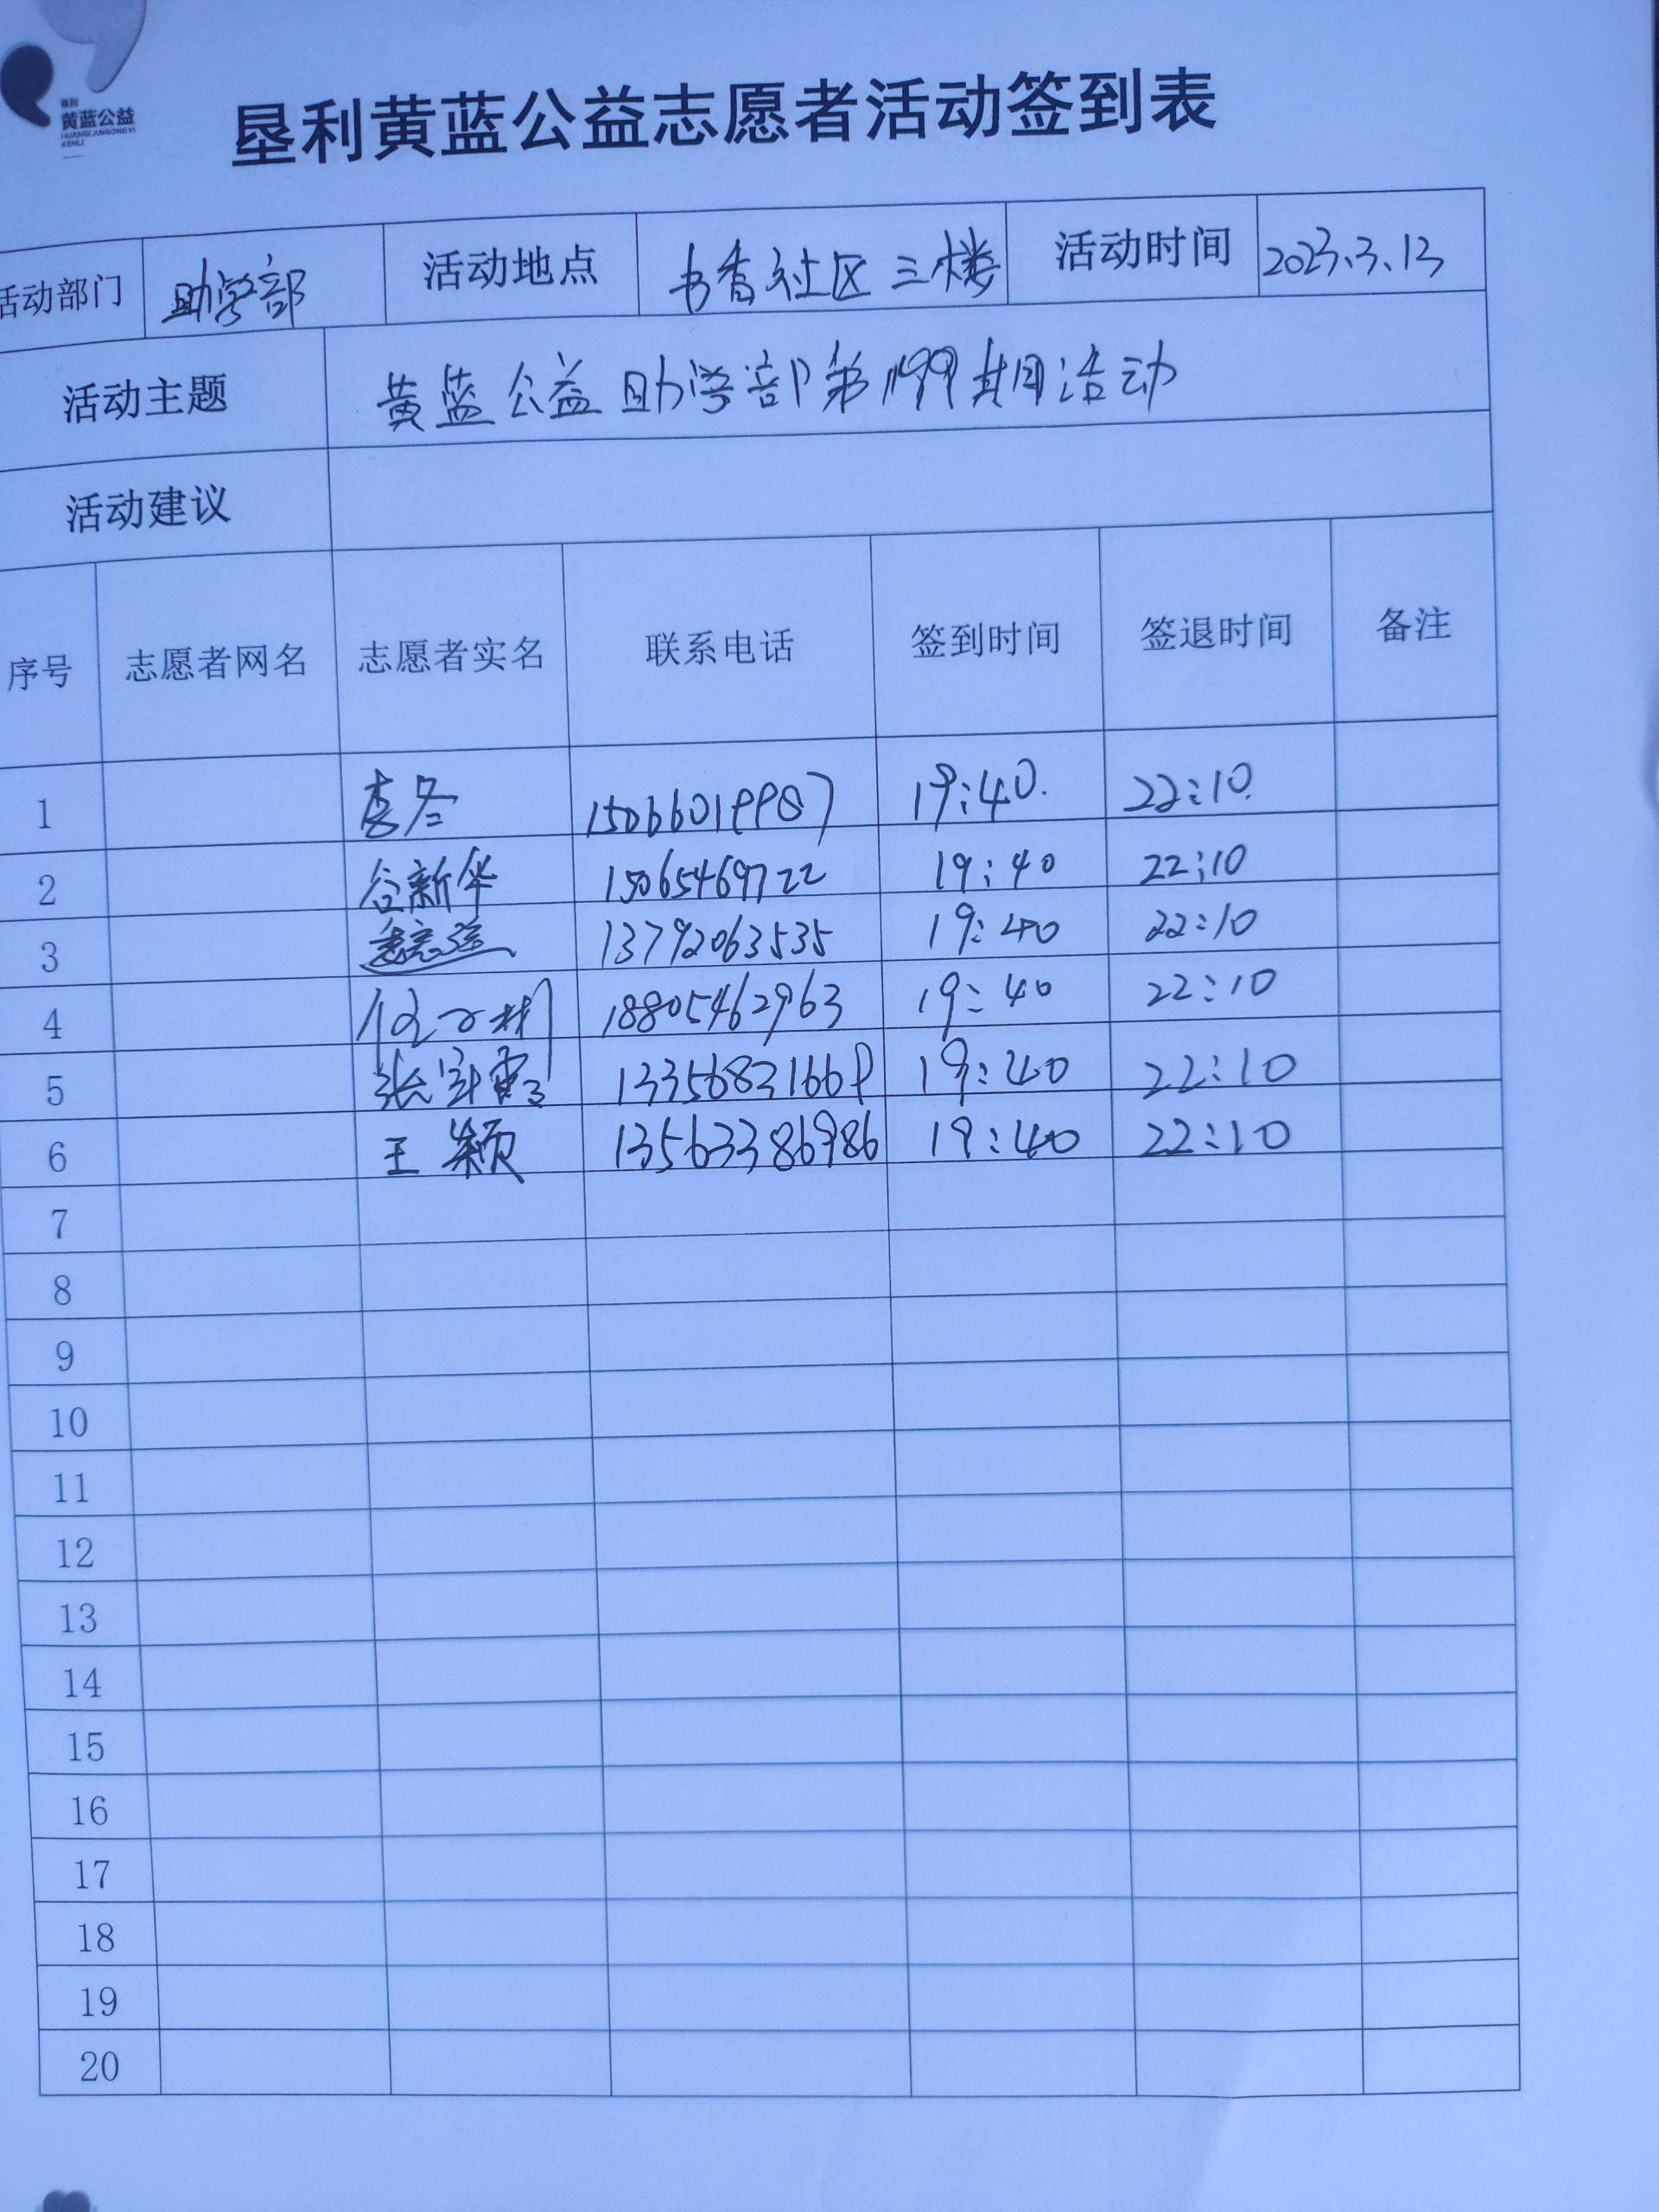 垦利
黄蓝公益
HUANGLANGONGYI
KENLI
垦利黄蓝公益志愿者活动签到表
活动部门 助学部 活动地点 书香社区三楼 活动时间 2023.3.13
活动主题 黄蓝公益助学部第199期活动
活动建议
序号 志愿者网名 志愿者实名 联系电话 签到时间 签退时间 备注
1 李冬 15066019987 19:40. 22:10.
2 谷新华 15065469722 19:40 22:10
3 13792063535 19:40 22:10
4 18805462963 19:40 22:10
5 张 13356831668 19:40 22:10
6 王颖 13563386986 19:40 22:10
7
8
9
10
11
12
13
14
15
16
17
18
19
20